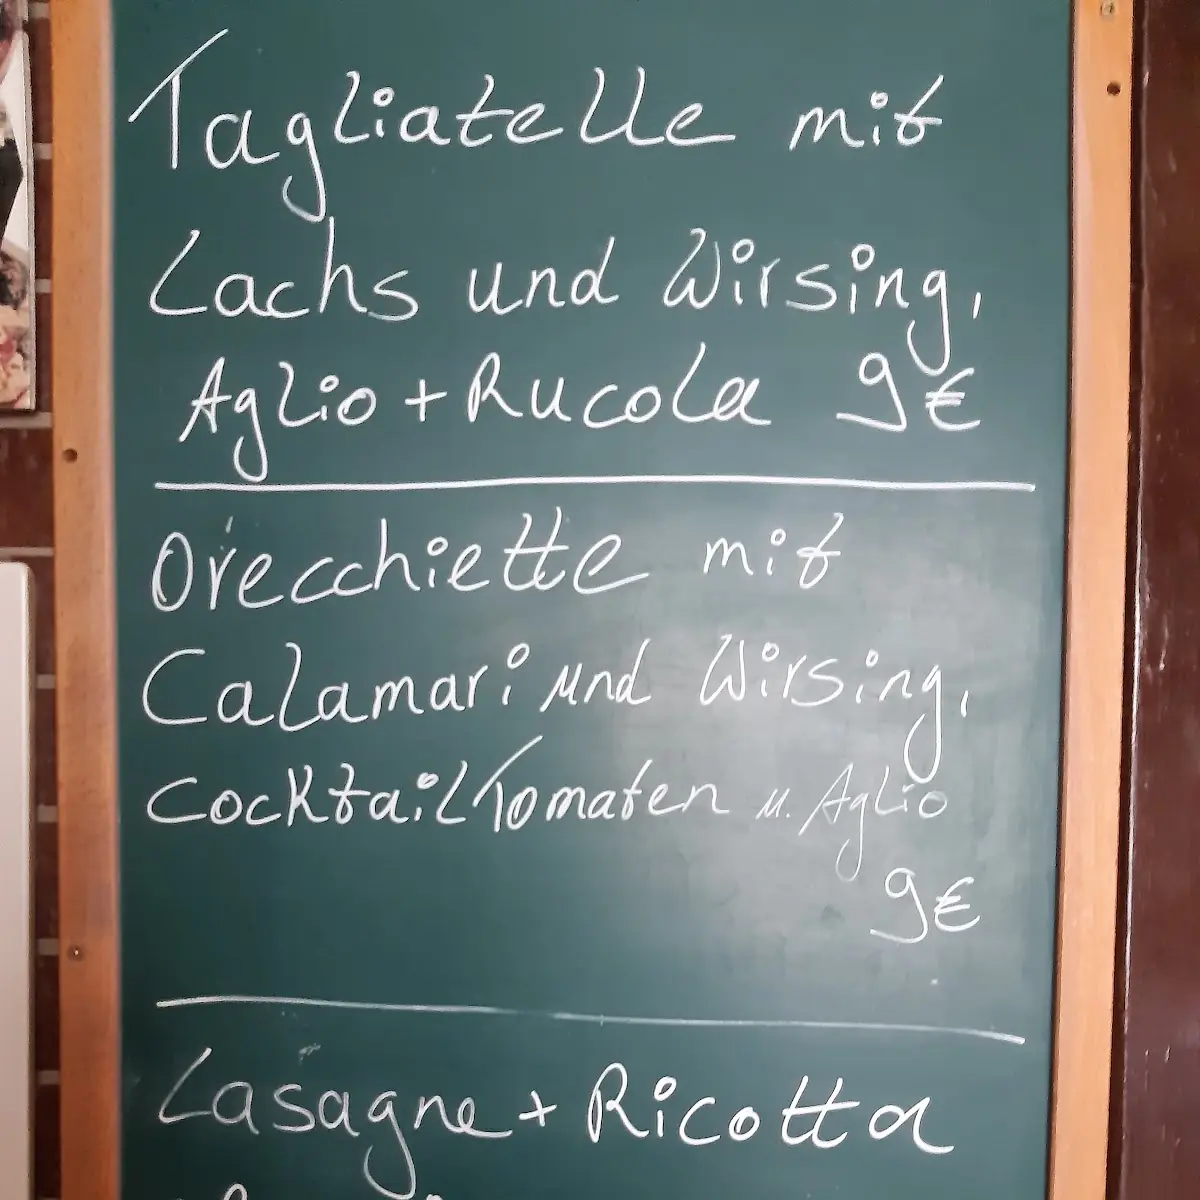 Tagliatelle mit
Lachs und Wirsing,
Aglio + Rucola 9€
Orecchiette mit
Calamari und Wirsing,
CocktailTomaten u. Aglio
9€
Lasagne + Ricotta